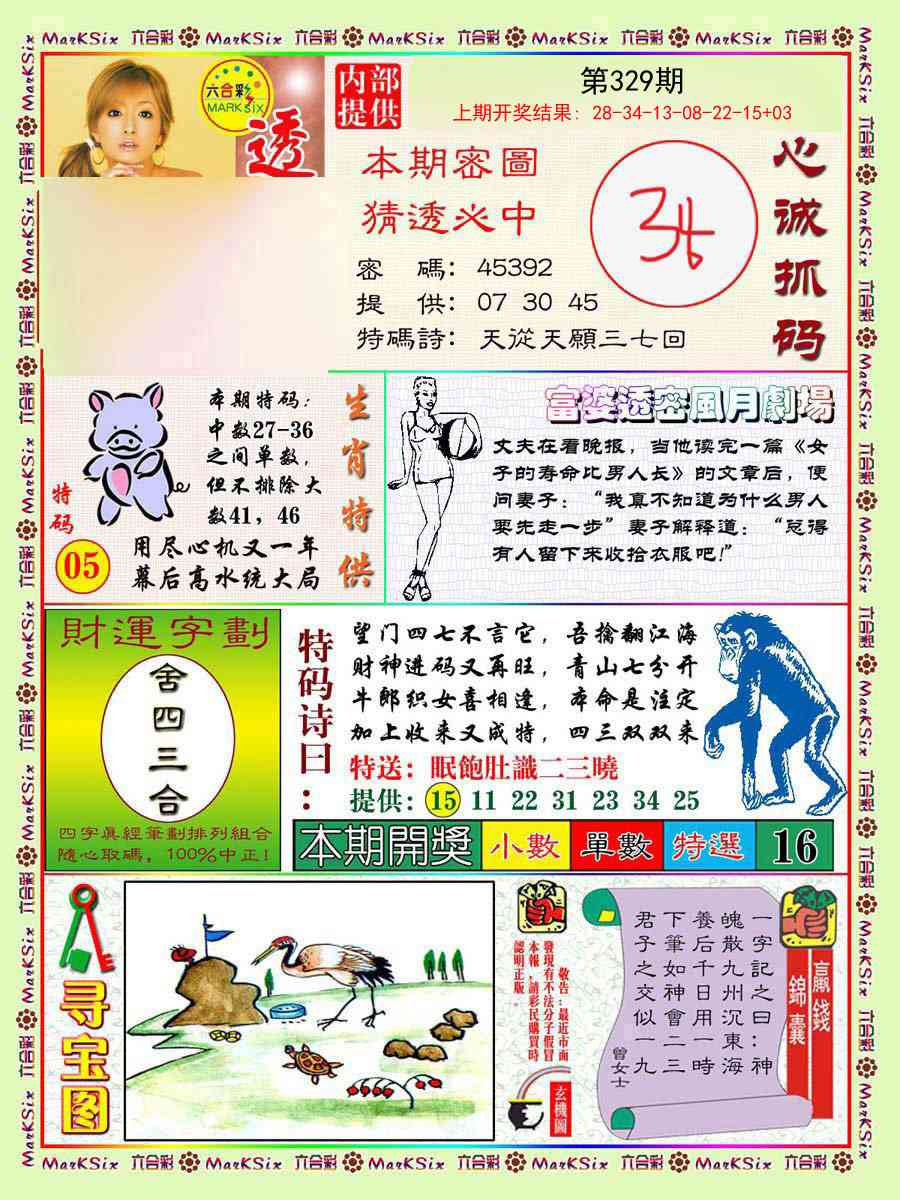 MarKSix 六合彩 MarKSix 六合彩 MarKSix 六合彩 MarKSix 六合彩 MarKSix 六合彩
六合彩
MARK SIX
透
内部
提供
第329期
上期开奖结果：28-34-13-08-22-15+03
本期密圖
猜透必中
密　碼：45392
提　供：07 30 45
特碼詩：天從天願三七回
心诚抓码
本期特码：
中数27-36
之间单数，
但不排除大
数41，46
特码
05
用尽心机又一年
幕后高水统大局
生肖特供
富婆透密風月劇場
丈夫在看晚报，当他读完一篇《女
子的寿命比男人长》的文章后，便
问妻子：“我真不知道为什么男人
要先走一步”妻子解释道：“总得
有人留下来收拾衣服吧!”
財運字劃
舍四三合
四字眞經筆劃排列組合
隨心取碼，100%中正!
特码诗曰：
望门四七不言它，吾擒翻江海
财神进码又再旺，青山七分开
牛郎织女喜相逢，本命是注定
加上收来又成特，四三双双来
特送：眠飽肚識二三曉
提供：15 11 22 31 23 34 25
本期開獎 小數 單數 特選 16
寻宝图
敬告:最近市面
發現有不法分子假冒
本報,請彩民購買時
認明正版.
玄機圖
一字記之曰：神
魄散九州沉東海
養后千日用一時
下筆如神會二三
君子之交似一九
曾女士
贏錢
錦囊
MarKSix 六合彩 MarKSix 六合彩 MarKSix 六合彩 MarKSix 六合彩 MarKSix 六合彩